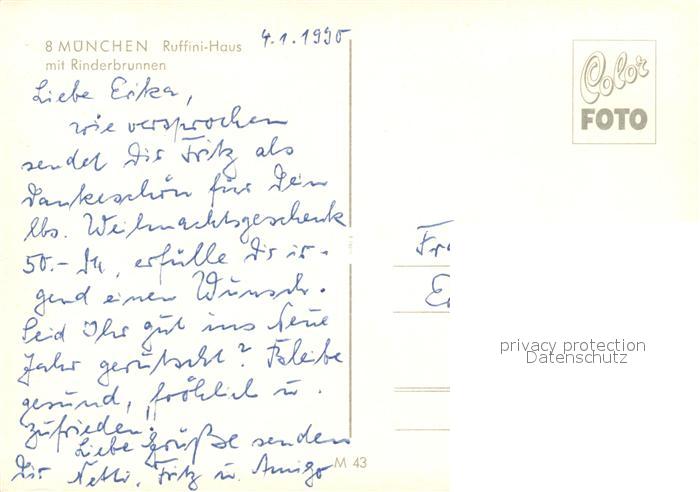 8 MÜNCHEN Ruffini-Haus
mit Rinderbrunnen
4.1.1990
Liebe Erika,
wie versprochen
sendet Dir Fritz als
Dankeschön für Dein
lbs. Weihnachtsgeschenk
50.- DM, erfülle Dir ir-
gend einen Wunsch.
Seid Ihr gut ins Neue
Jahr gerutscht? Bleibe
gesund, fröhlich u.
zufrieden!
Liebe Grüße senden
Dir Netti, Fritz u. Amigo
Color
FOTO
Fr
E
privacy protection
Datenschutz
M 43